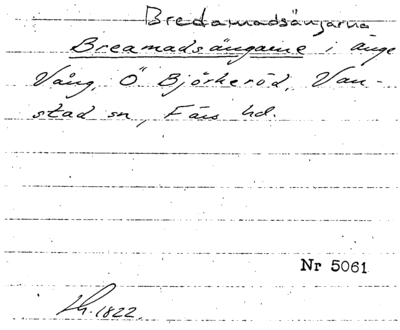 Bredamadsängarna
Breamadsängarne i änge
Vång, Ö Björkeröd, Van-
stad sn, Färs hd.
Nr 5061
1822.